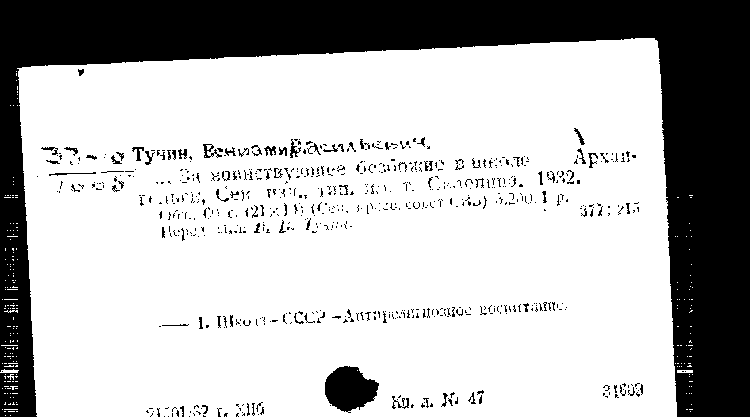 Тучин, Вениамин Васильевич.
... За воинствующее безбожие в школе Архан-
гельск, Сев. изд., тип. им. т. Склепина. 1932.
Обл., с. (21×1 (Сев. краев. совет СВБ) 3.200. 1 р.
Перед загл. В. В. Тучин. 377:215
—— 1. Школа-СССР-Антирелигиозное воспитание.
г. Кн. л. № 47 31609